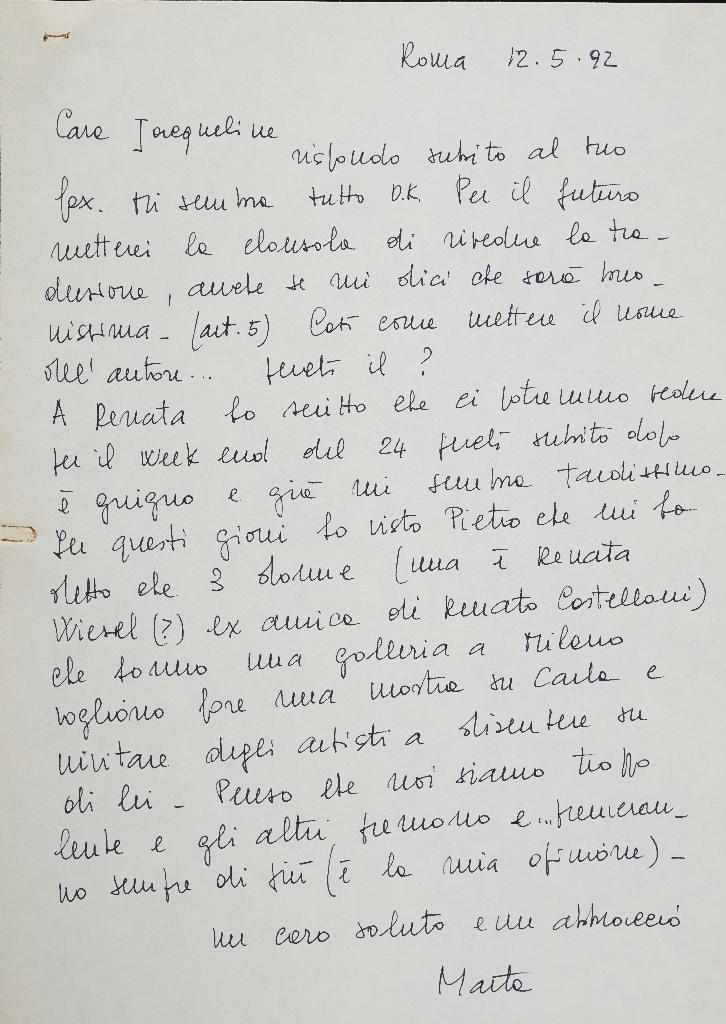 Roma 12.5.92
Cara Jacqueline
rispondo subito al tuo
fax. Mi sembra tutto O.K. Per il futuro
metterei la clausola di rivedere la tra-
duzione, anche se mi dici che sarà buo-
nissima - (art. 5) Così come mettere il nome
dell'autore... perché il ?
A Renata ho scritto che ci potremmo vedere
per il week end del 24 perché subito dopo
è giugno e già mi sembra tardissimo -
In questi giorni ho visto Pietro che mi ha
detto che 3 donne (una è Renata
Wiesel (?) ex amica di Renato Castellani)
che hanno una galleria a Milano
vogliono fare una mostra su Carla e
invitare degli artisti a discutere su
di lei - Penso che noi siamo troppo
lente e gli altri premono e... premeran-
no sempre di più (è la mia opinione) -
un caro saluto e un abbraccio
Marta